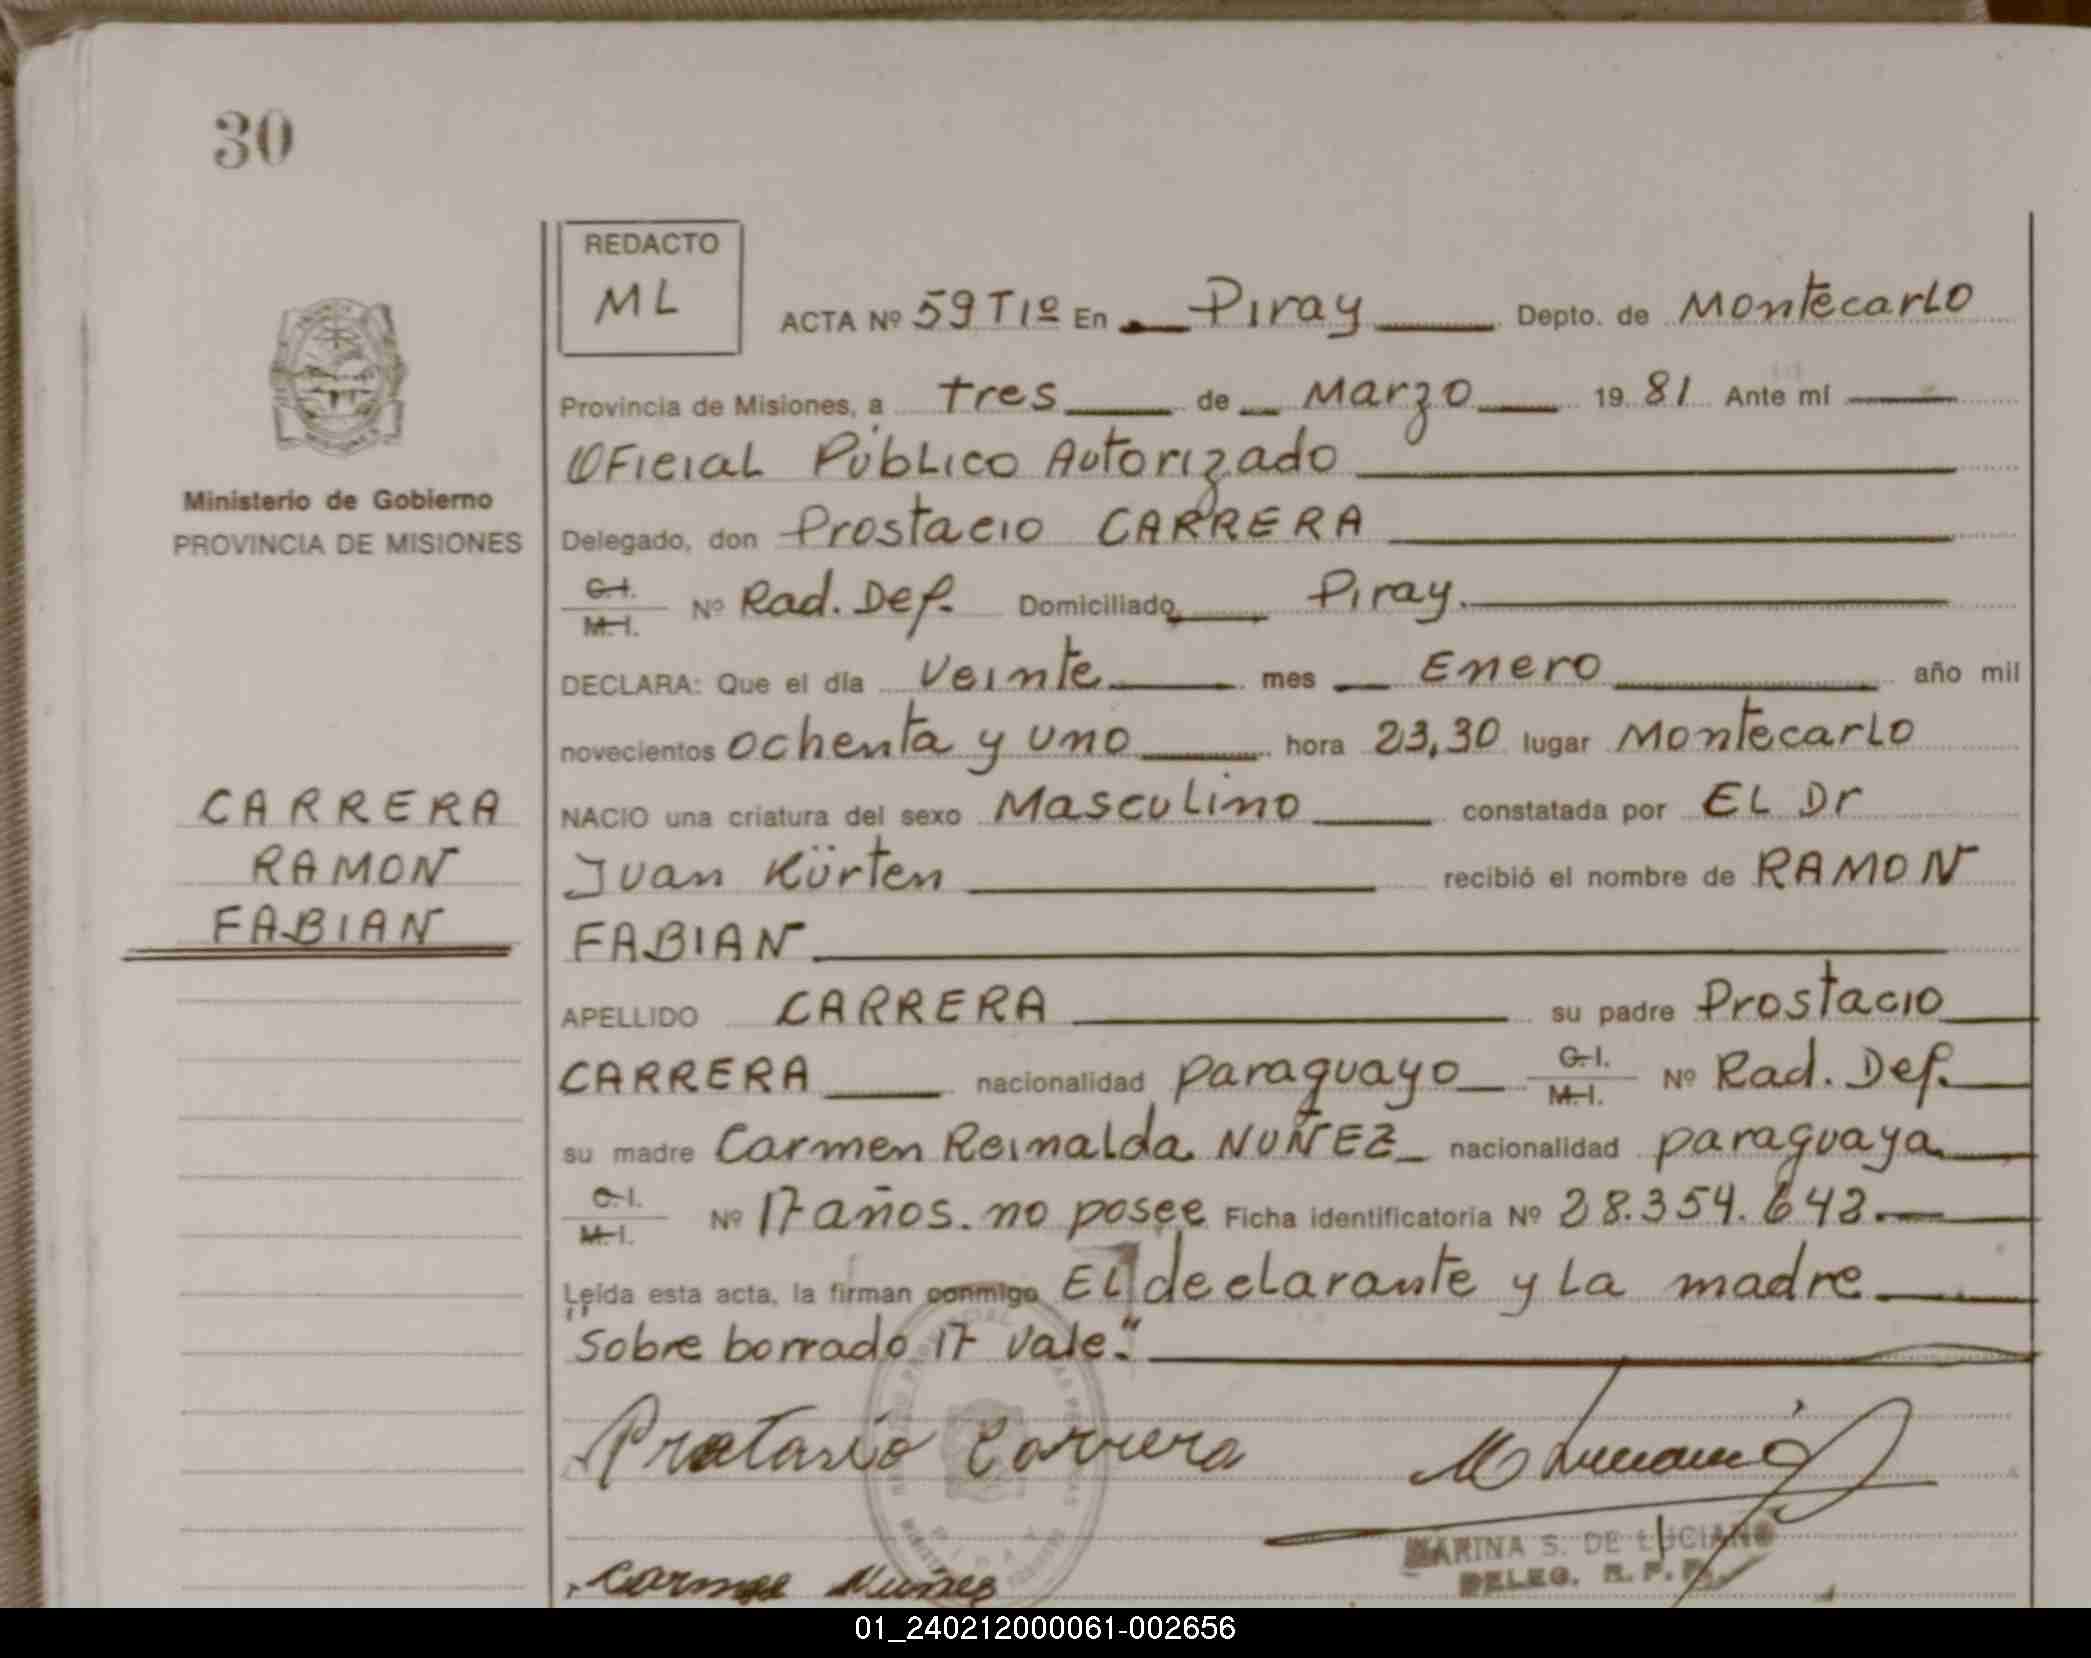 30
REDACTO
ML
ACTA Nº 59 T1º En Piray Depto. de Montecarlo
Provincia de Misiones, a tres de Marzo 19 81 Ante mí
Oficial Público Autorizado
Ministerio de Gobierno
PROVINCIA DE MISIONES
Delegado, don Prostacio CARRERA
C.I. M.I. Nº Rad. Def. Domiciliado Piray.
DECLARA: Que el día Veinte mes Enero año mil
novecientos ochenta y uno hora 23,30 lugar Montecarlo
CARRERA
RAMON
FABIAN
NACIO una criatura del sexo Masculino constatada por EL Dr
Juan Kürten recibió el nombre de RAMON
FABIAN
APELLIDO CARRERA su padre Prostacio
CARRERA nacionalidad paraguayo C.I. M.I. Nº Rad. Def.
su madre Carmen Reinalda NUÑEZ nacionalidad paraguaya
C.I. M.I. Nº 17 años. no posee Ficha identificatoria Nº 28.354.642.
Leída esta acta, la firman conmigo EL declarante y La madre
"Sobre borrado 17 vale."
Carrera
Carmen Nuñes
MARINA S. DE LUCIANO
DELEG. R.P.P.
01_240212000061-002656